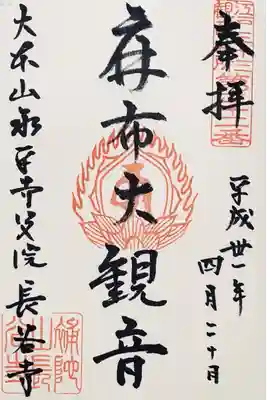 奉拝
平成卅一年
四月二十日
麻布大観音
大本山永平寺別院 長谷寺